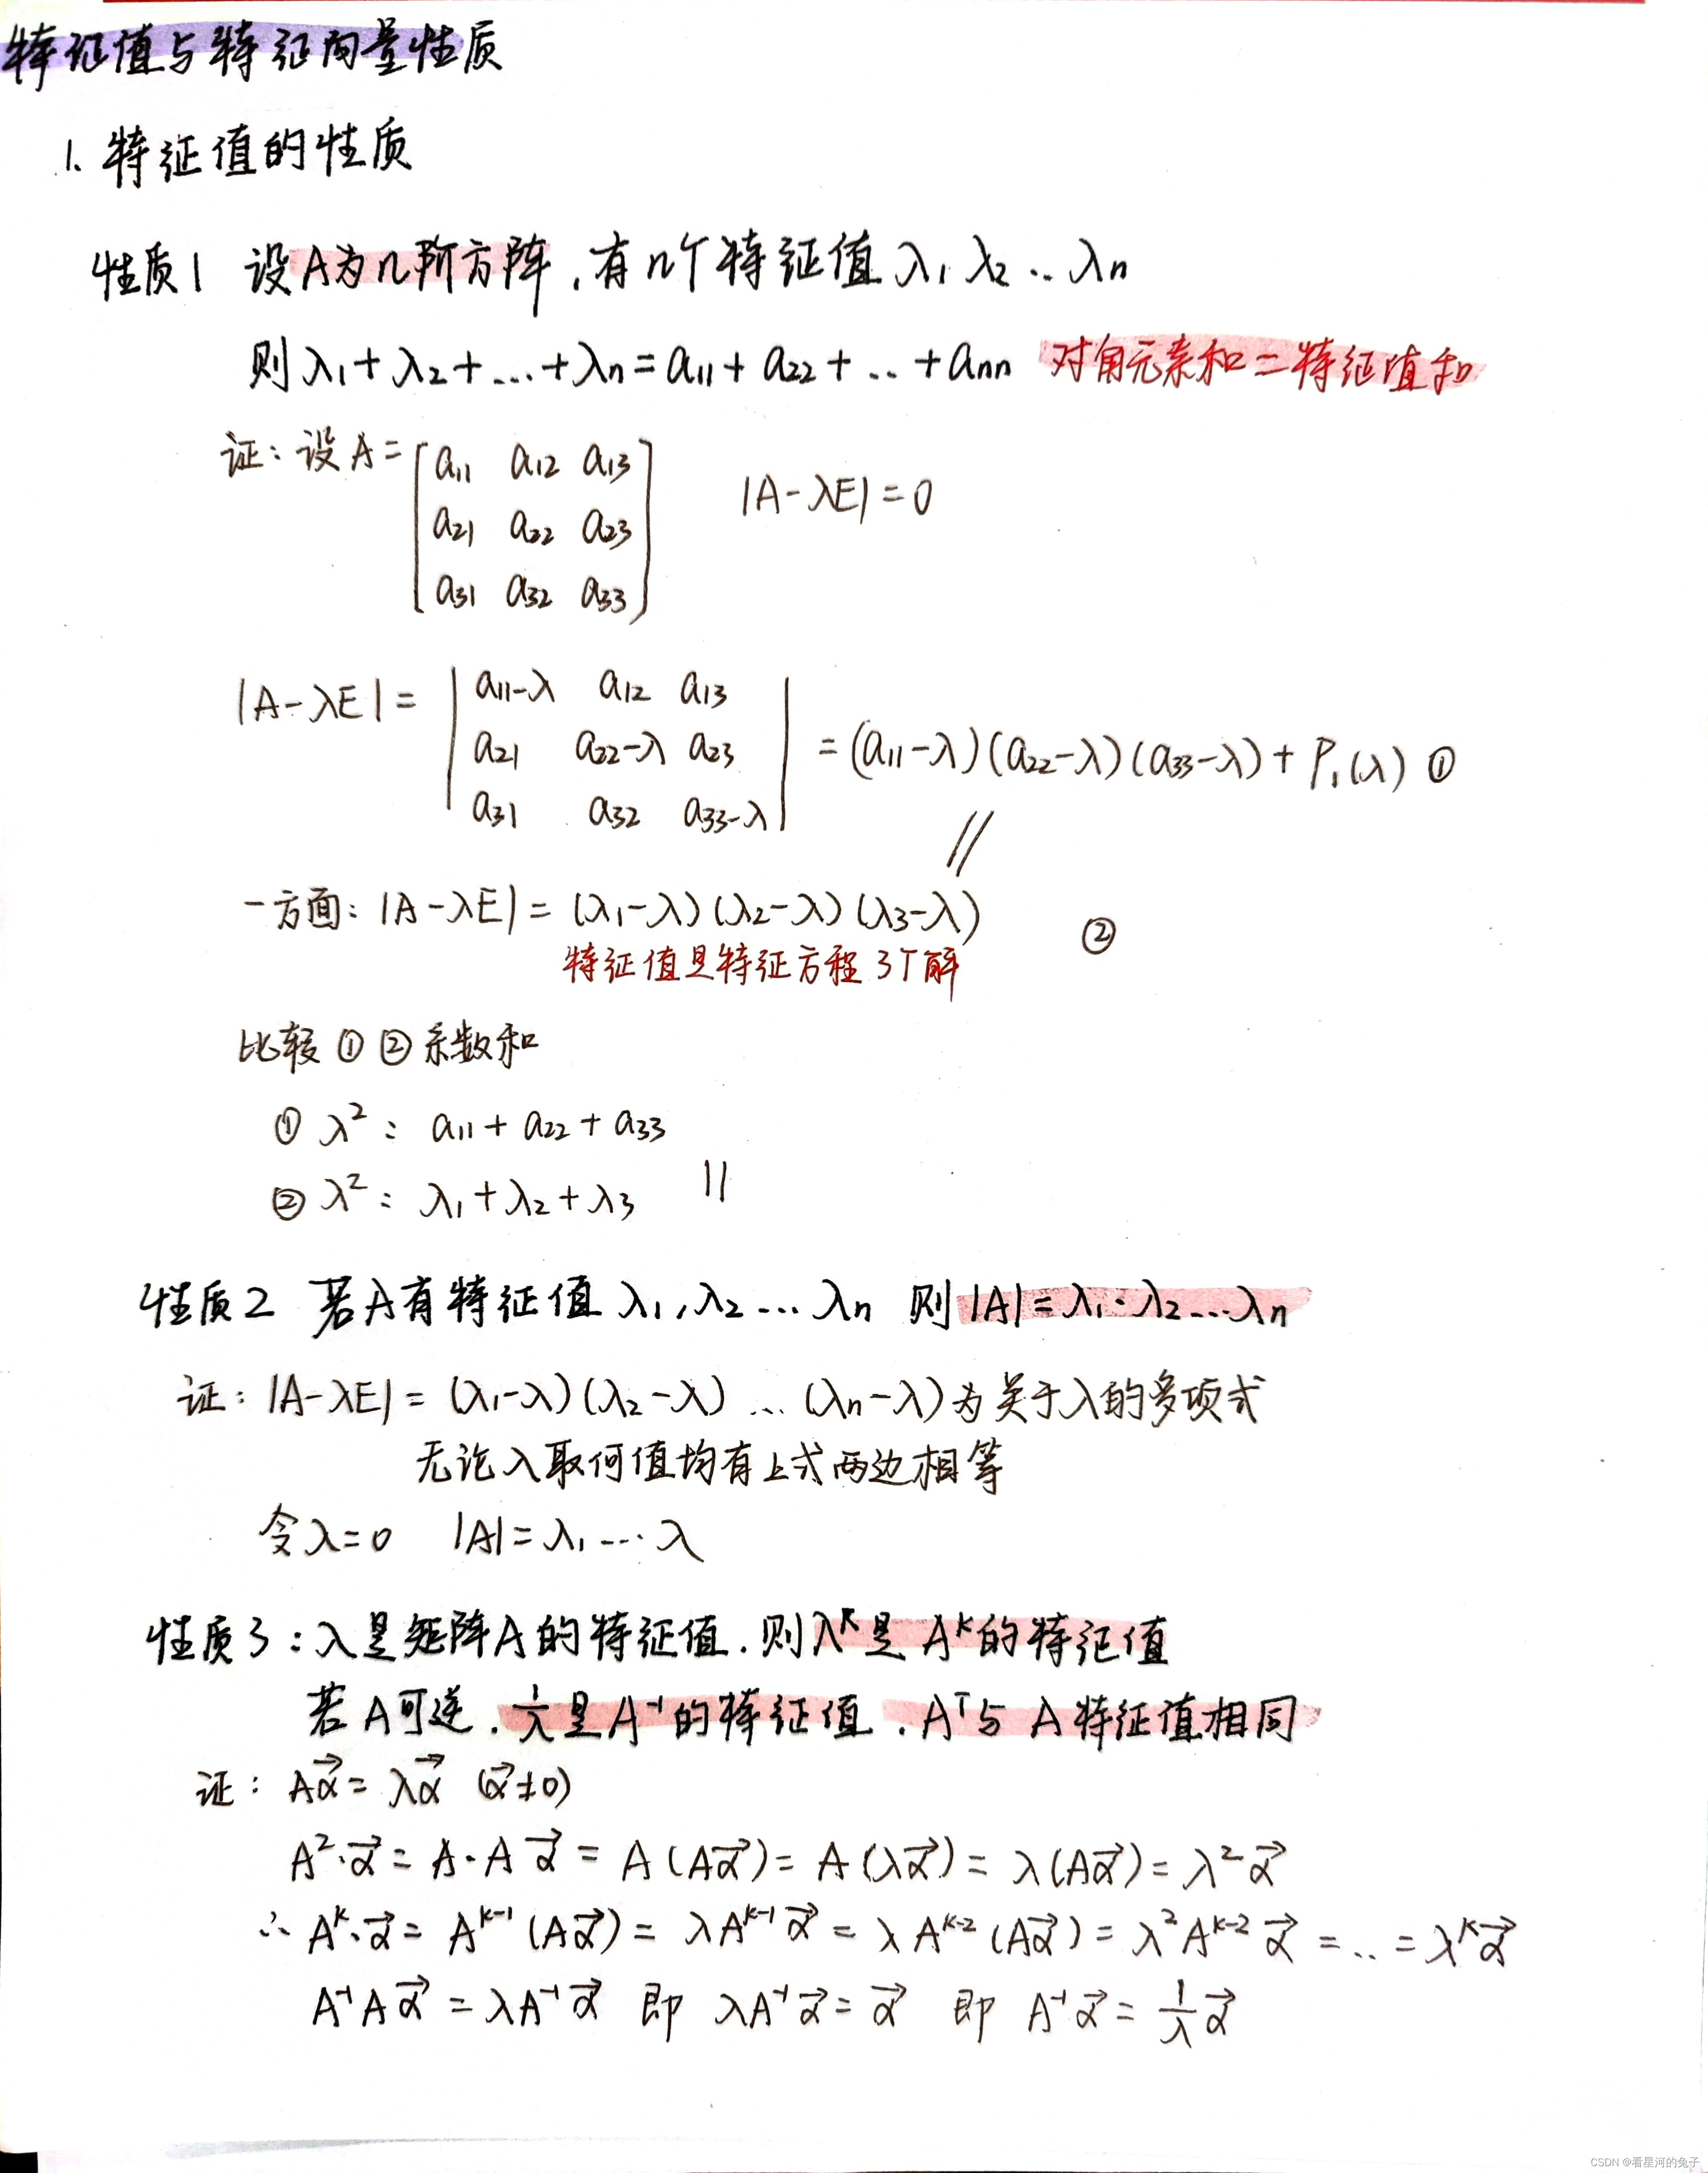 特征值与特征向量性质
1. 特征值的性质
性质1 设A为n阶方阵,有n个特征值 λ₁ λ₂ ‥ λn
则 λ₁+λ₂+…+λn=a₁₁+a₂₂+‥+ann 对角元素和=特征值和
证:设A=[a₁₁ a₁₂ a₁₃ |A-λE|=0
a₂₁ a₂₂ a₂₃
a₃₁ a₃₂ a₃₃]
|A-λE|=|a₁₁-λ a₁₂ a₁₃
a₂₁ a₂₂-λ a₂₃ =(a₁₁-λ)(a₂₂-λ)(a₃₃-λ)+P₁(λ) ①
a₃₁ a₃₂ a₃₃-λ|
//
一方面:|A-λE|=(λ₁-λ)(λ₂-λ)(λ₃-λ) ②
特征值是特征方程3个解
比较①②系数和
① λ²: a₁₁+a₂₂+a₃₃
||
② λ²: λ₁+λ₂+λ₃
性质2 若A有特征值 λ₁,λ₂…λn 则|A|=λ₁·λ₂…λn
证:|A-λE|=(λ₁-λ)(λ₂-λ)…(λn-λ)为关于λ的多项式
无论λ取何值均有上式两边相等
令λ=0 |A|=λ₁…λ
性质3:λ是矩阵A的特征值.则λᵏ是Aᵏ的特征值
若A可逆.1/λ是A⁻¹的特征值.Aᵀ与A特征值相同
证:Aα⃗=λα⃗ (α⃗≠0)
A²·α⃗=A·Aα⃗=A(Aα⃗)=A(λα⃗)=λ(Aα⃗)=λ²α⃗
∴Aᵏ·α⃗=Aᵏ⁻¹(Aα⃗)=λAᵏ⁻¹α⃗=λAᵏ⁻²(Aα⃗)=λ²Aᵏ⁻²α⃗=‥=λᵏα⃗
A⁻¹Aα⃗=λA⁻¹α⃗ 即 λA⁻¹α⃗=α⃗ 即 A⁻¹α⃗=1/λ α⃗
CSDN @看星河的兔子